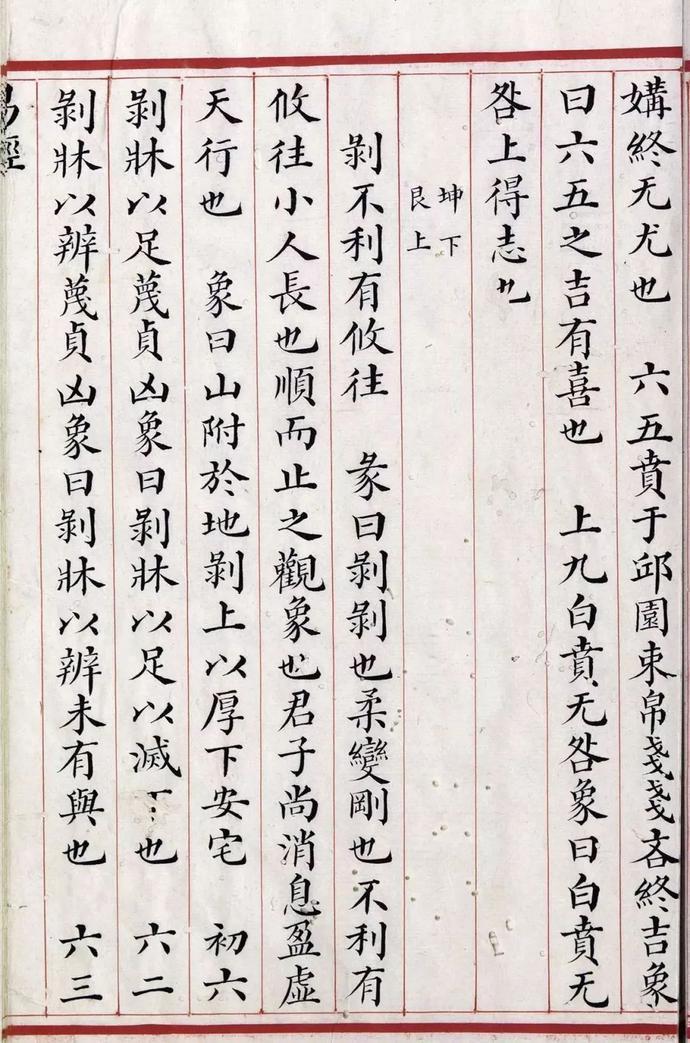 媾終无尤也 六五賁于邱園束帛戔戔吝終吉象
曰六五之吉有喜也 上九白賁无咎象曰白賁无
咎上得志也
坤下
艮上
剝不利有攸往 彖曰剝剝也柔變剛也不利有
攸往小人長也順而止之觀象也君子尚消息盈虛
天行也 象曰山附於地剝上以厚下安宅 初六
剝牀以足蔑貞凶象曰剝牀以足以滅下也 六二
剝牀以辨蔑貞凶象曰剝牀以辨未有與也 六三
易經